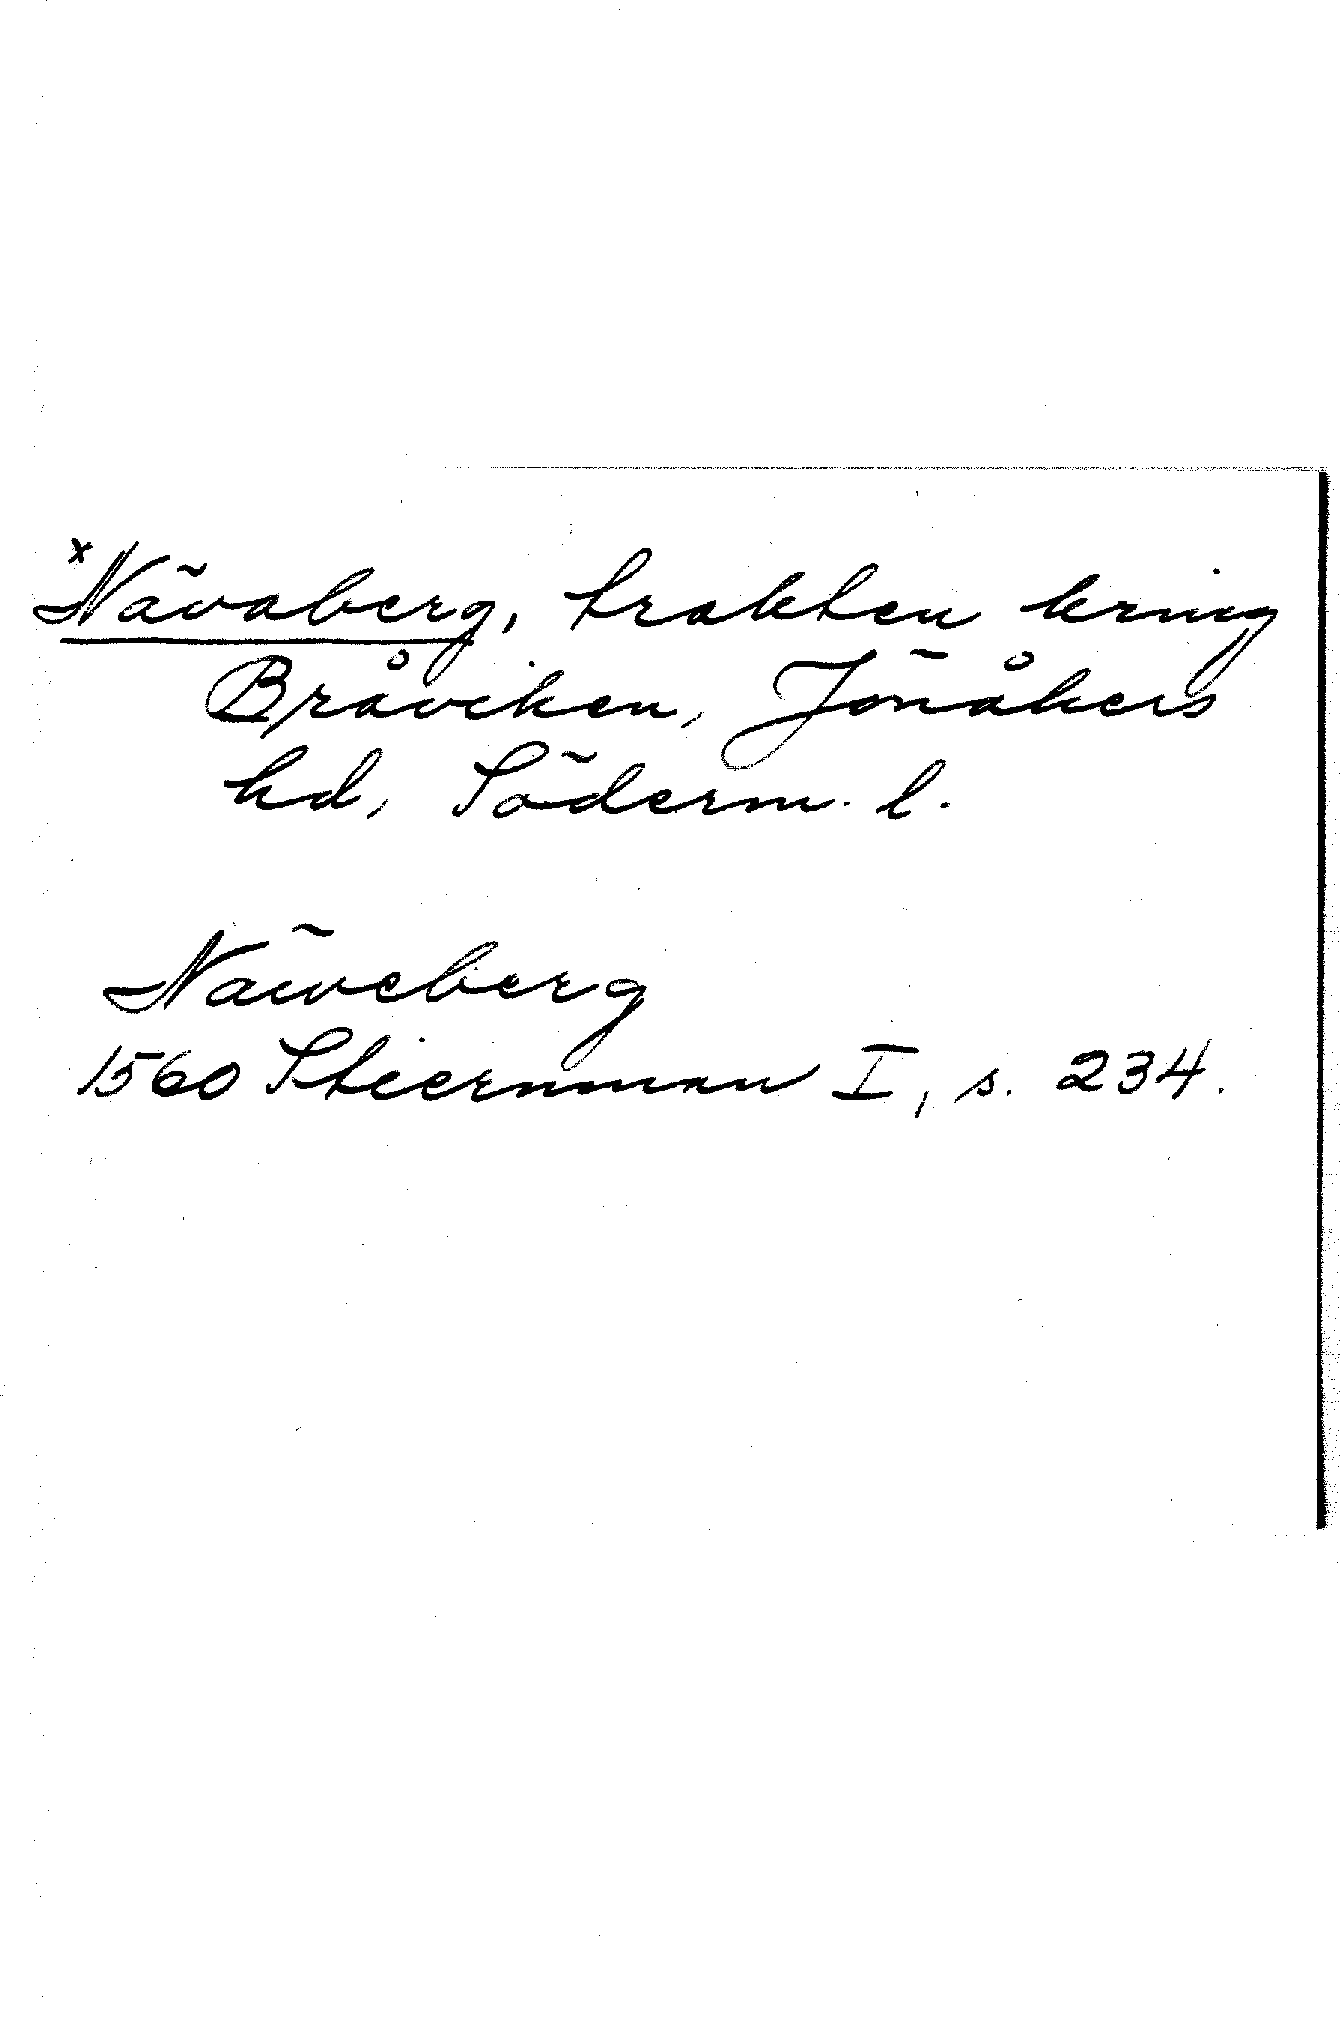 *Nävaberg, trakten kring
Bråviken, Jönåkers
hd, Söderm. l.
Näweberg
1560 Stiernman I, s. 234.